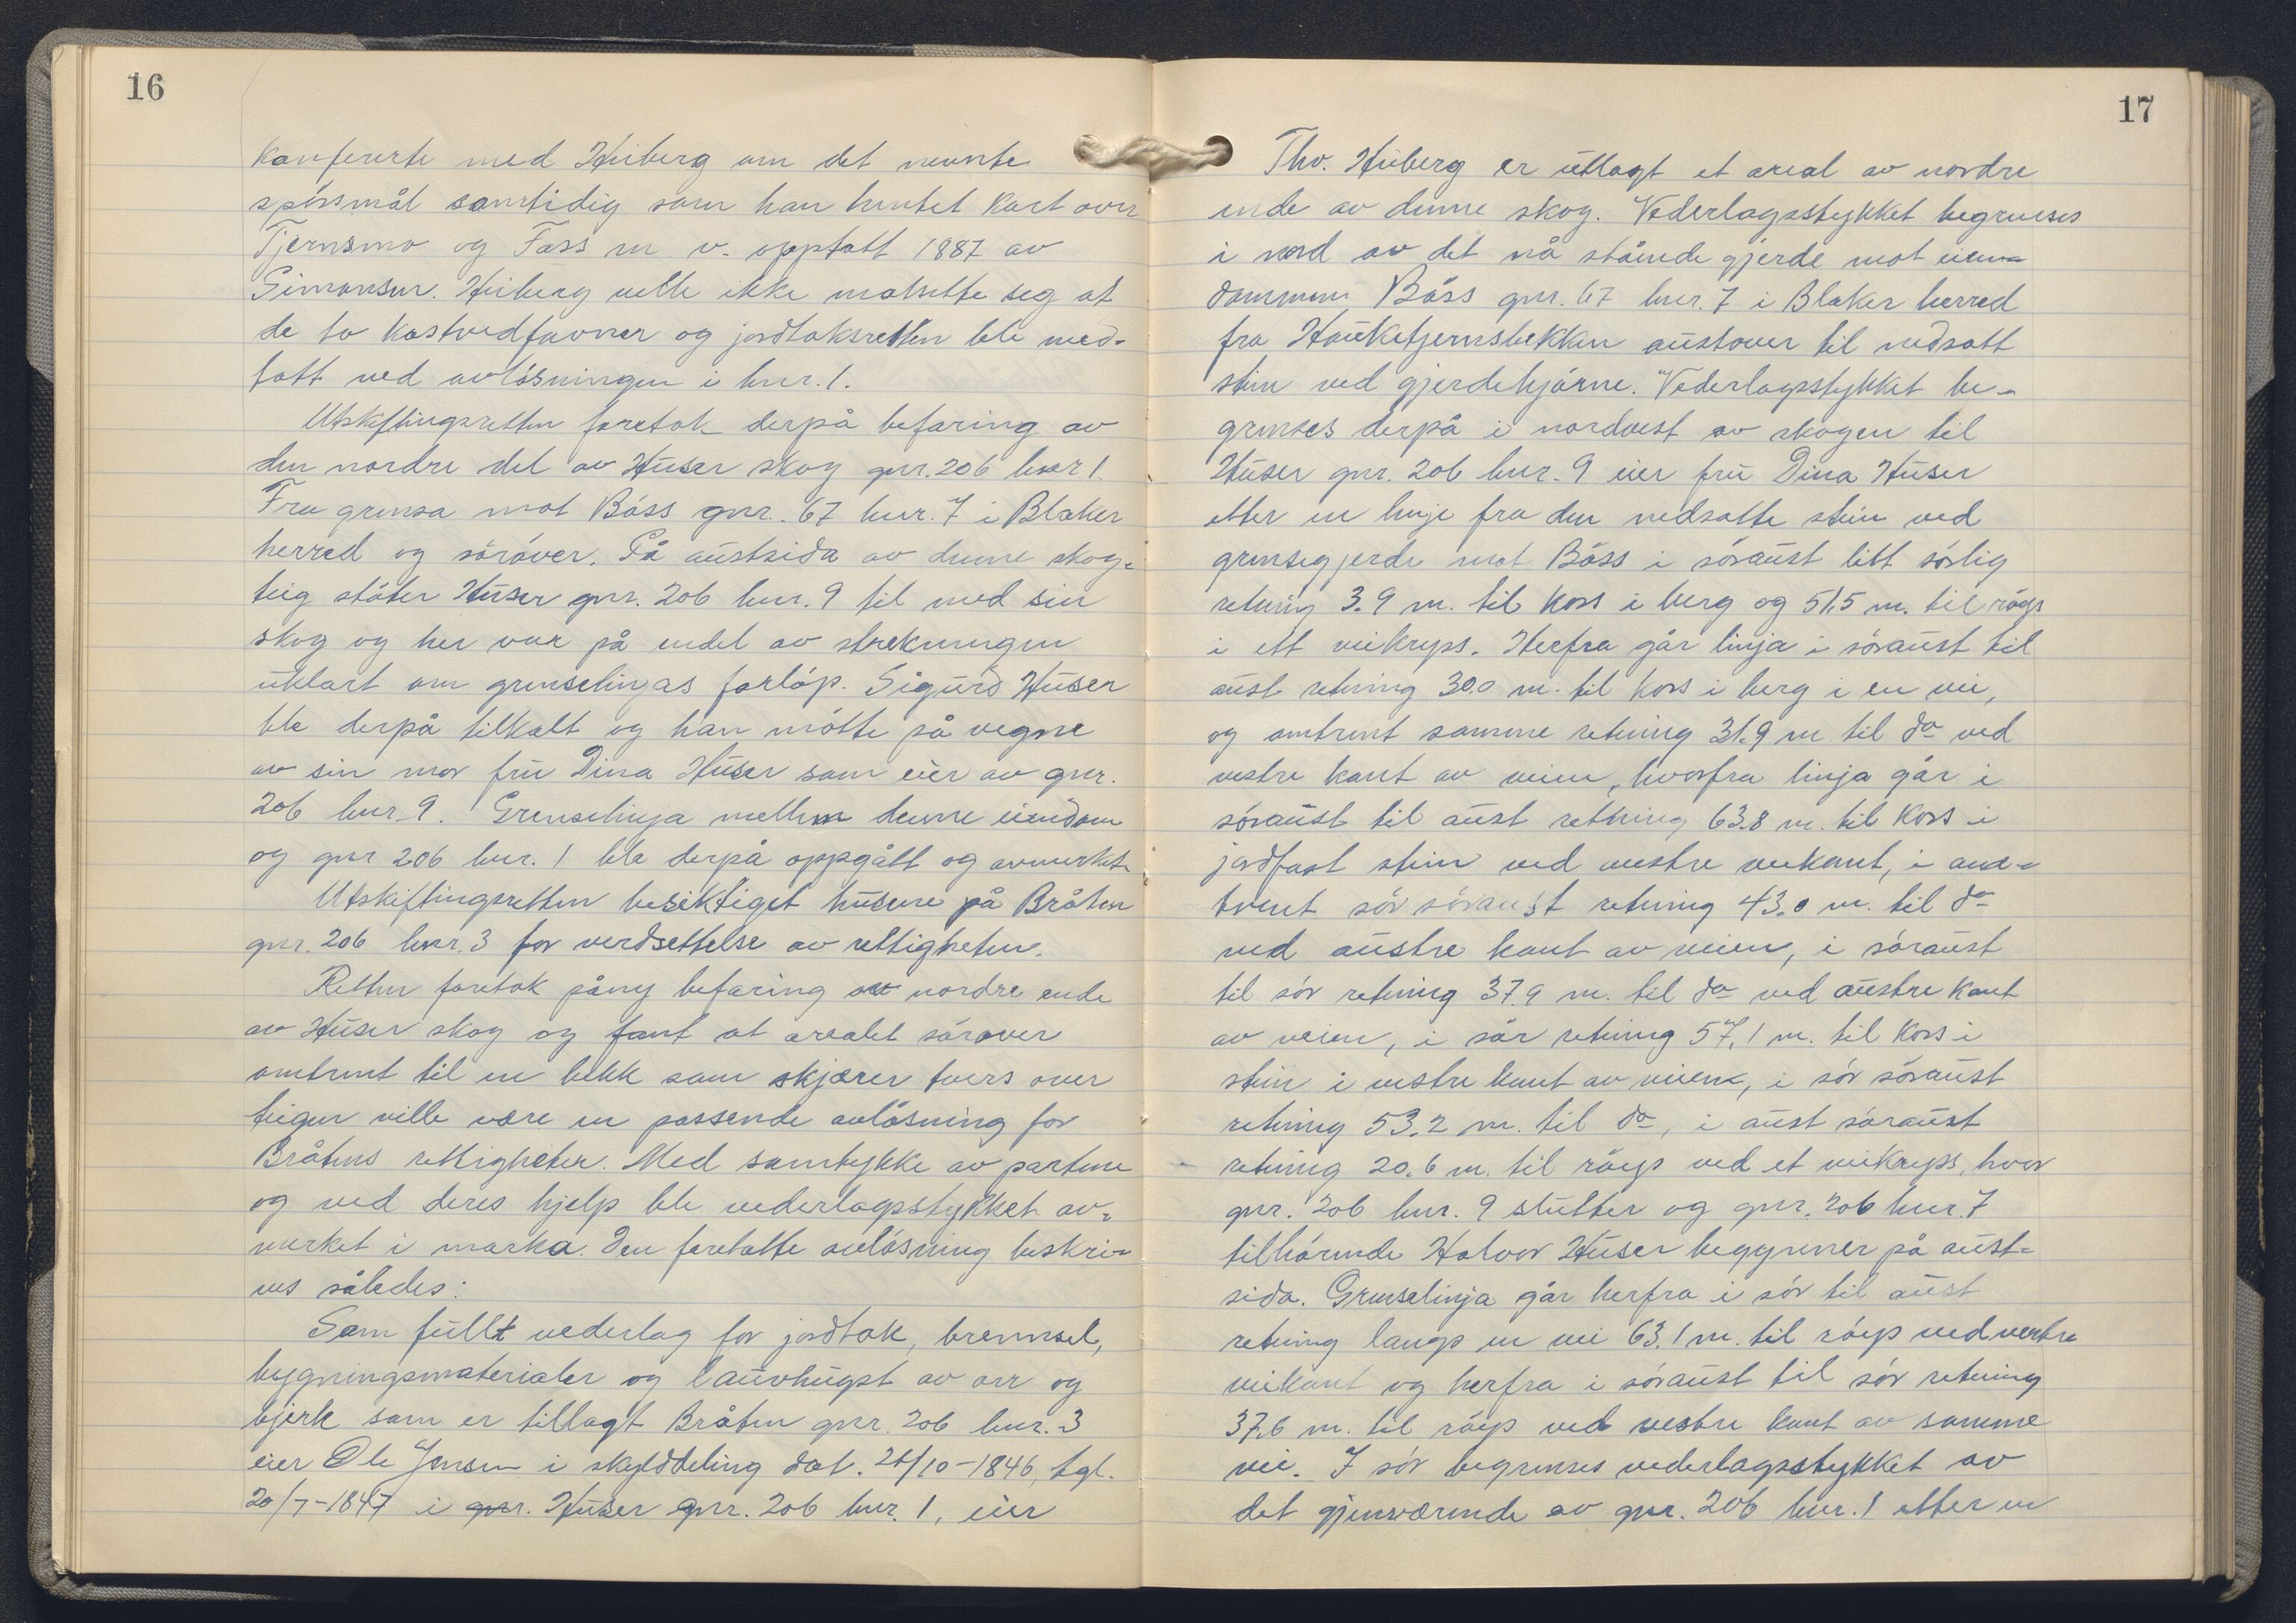 16
konfererte med Huberg om det nevnte
spörsmål samtidig som han hentet kart over
Tjernsmo og Foss m v. opptatt 1887 av
Simonsen. Huberg velle ikke motsette seg at
de to kastvedfavner og jordtaksretten ble med-
tatt ved avlösningen i bnr. 1.
Utskiftingsretten foretok derpå befaring av
den nordre del av Huser skog gnr. 206 bnr 1.
Fra grensa mot Böss gnr. 67 bnr. 7 i Blaker
herred og söröver. På austsida av denne skog-
teig stöter Huser gnr. 206 bnr. 9 til med sin
skog og her var på endel av strekningen
uklart om grenselinjas forlöp. Sigurd Huser
ble derpå tilkalt og han mötte på vegne
av sin mor fru Dina Huser som eier av gnr.
206 bnr 9. Grenselinja mellem denne eiendom
og gnr 206 bnr. 1 ble derpå oppgått og avmerket.
Utskiftingsretten besiktiget husene på Bråten
gnr. 206 bnr. 3 for verdsettelse av rettigheten.
Retten foretok påny befaring av nordre ende
av Huser skog og fant at arealet söröver
omtrent til en bekk som skjærer tvers over
teigen ville være en passende avlösning for
Bråtens rettigheter. Med samtykke av partene
og ved deres hjelp ble vederlagsstykket av-
merket i marka. Den foretatte avlösning beskri-
ves således:
Som fullt vederlag for jordtak, brennsel,
bygningsmaterialer og lauvhugst av orr og
bjerk som er tillagt Bråten gnr. 206 bnr. 3
eier Ole Jensen i skylddeling dat. 26/10-1846, tgl.
20/7-1847 i gnr. Huser gnr. 206 bnr. 1, eier
17
Thv. Huberg er utlagt et areal av nordre
ende av denne skog. Vederlagsstykket begrenses
i nord av det nå stående gjerde mot eien-
dommen Böss gnr. 67 bnr. 7 i Blaker herred
fra Hauketjernsbekken austover til nedsatt
stein ved gjerdehjörne. Vederlagsstykket be-
grenses derpå i nordvest av skogen til
Huser gnr. 206 bnr. 9 eier fru Dina Huser
etter en linje fra den nedsatte stein ved
grensegjerde mot Böss i söraust litt sörlig
retning 3.9 m. til kors i berg og 51.5 m. til röys
i ett veikryss. Herfra går linja i söraust til
aust retning 30.0 m. til kors i berg i en vei,
og omtrent samme retning 31.9 m til do ved
vestre kant av veien, hvorfra linja går i
söraust til aust retning 63.8 m. til kors i
jordfast stein ved vestre veikant, i om-
trent sör söraust retning 43.0 m. til do
ved austre kant av veien, i söraust
til sör retning 37.9 m. til do ved austre kant
av veien, i sör retning 57.1 m. til kors i
stein i vestre kant av veien, i sör söraust
retning 53.2 m. til do, i aust söraust
retning 20.6 m. til röys ved et veikryss, hvor
gnr. 206 bnr. 9 slutter og gnr. 206 bnr. 7
tilhörende Halvor Huser begynner på aust-
sida. Grenselinja går herfra i sör til aust
retning langs en vei 63.1 m. til röys ved vestre
veikant og herfra i söraust til sör retning
37.6 m. til röys ved vestre kant av samme
vei. I sör begrenses vederlagsstykket av
det gjenværende av gnr. 206 bnr. 1 etter en